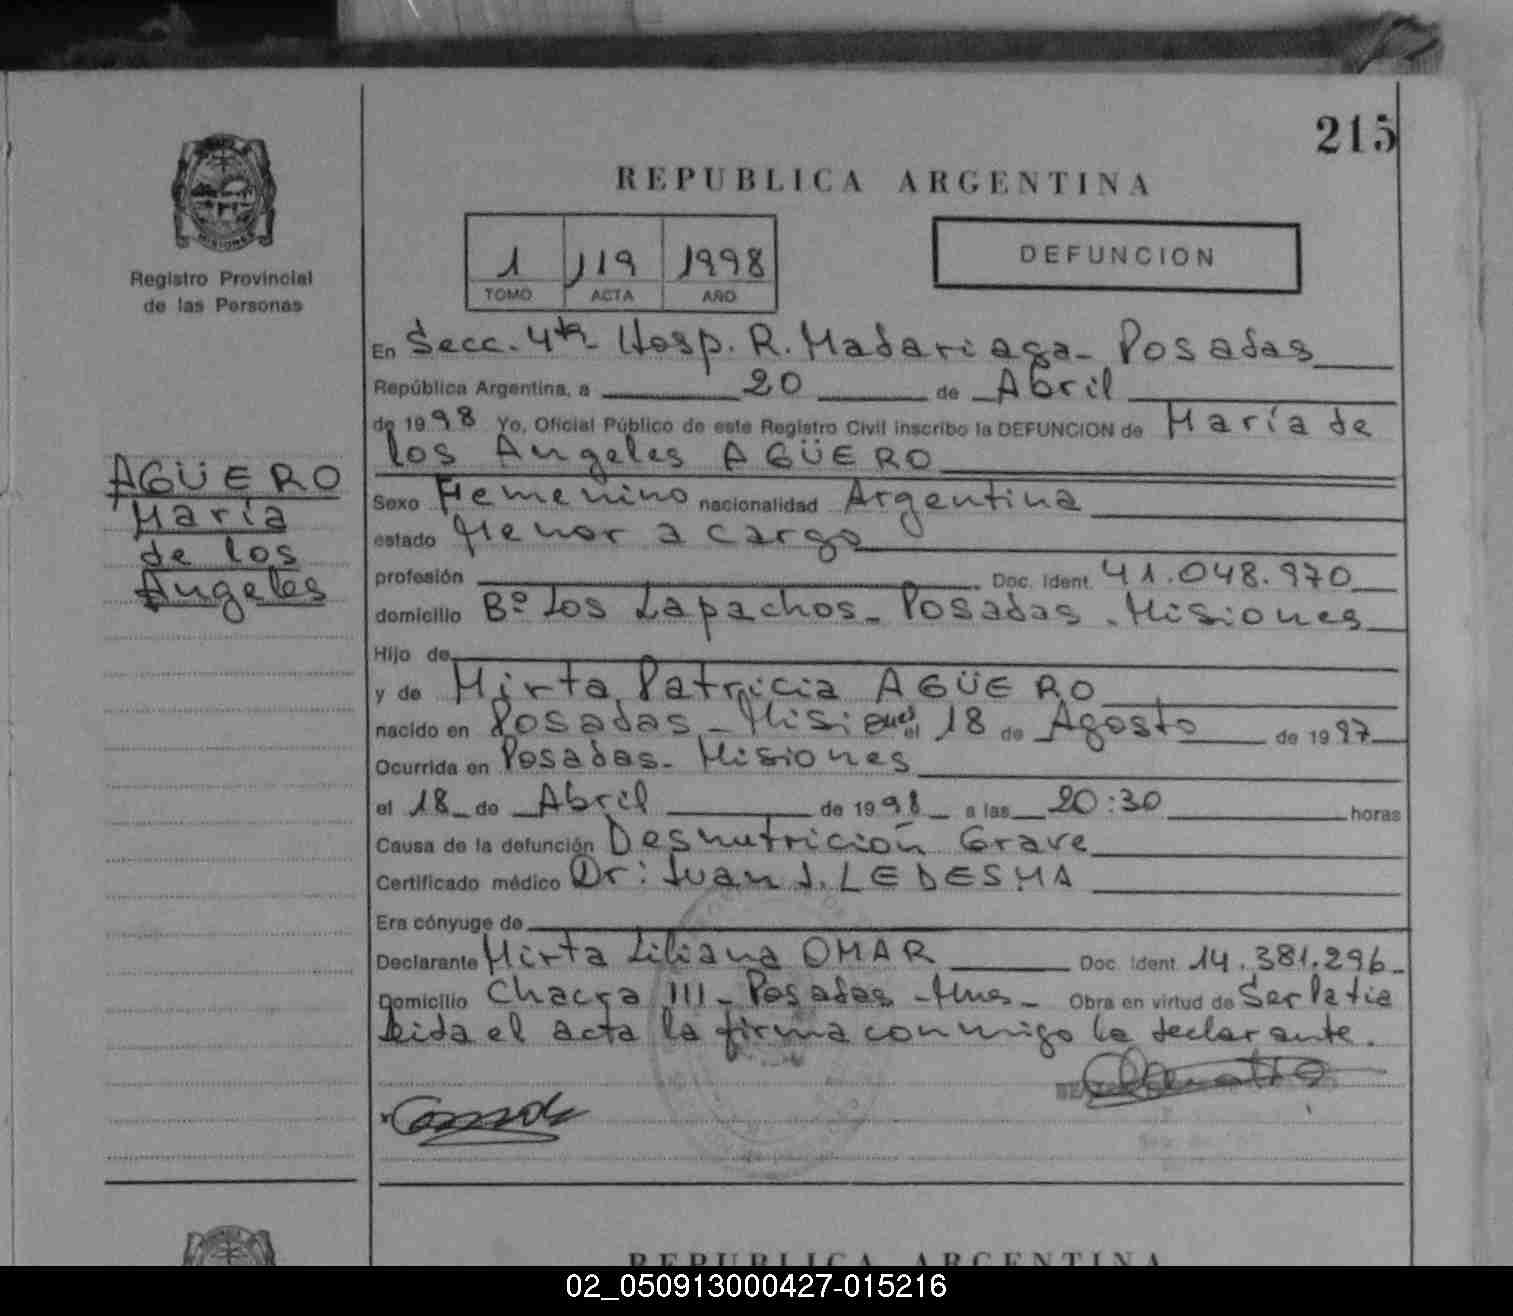 215
REPUBLICA ARGENTINA
MISIONES
Registro Provincial
de las Personas
1 119 1998
TOMO ACTA AÑO
DEFUNCION
En Secc. 4ta Hosp. R. Madariaga - Posadas
República Argentina, a 20 de Abril
de 1998 Yo, Oficial Público de este Registro Civil inscribo la DEFUNCION de María de
los Angeles AGÜERO
AGÜERO
María
de los
Angeles
Sexo Femenino nacionalidad Argentina
estado Menor a cargo
profesión Doc. Ident. 41.048.970
domicilio Bº Los Lapachos - Posadas - Misiones
Hijo de
y de Mirta Patricia AGÜERO
nacido en Posadas - Misiones el 18 de Agosto de 1997
Ocurrida en Posadas - Misiones
el 18 de Abril de 1998 a las 20:30 horas
Causa de la defunción Desnutrición Grave
Certificado médico Dr: Juan J. LEDESMA
Era cónyuge de
Declarante Mirta Liliana OMAR Doc. Ident. 14.381.296-
Domicilio Chacra III - Posadas - Mnes - Obra en virtud de Ser
leida el acta la firma conmigo la declarante.
REPUBLICA ARGENTINA
02_050913000427-015216